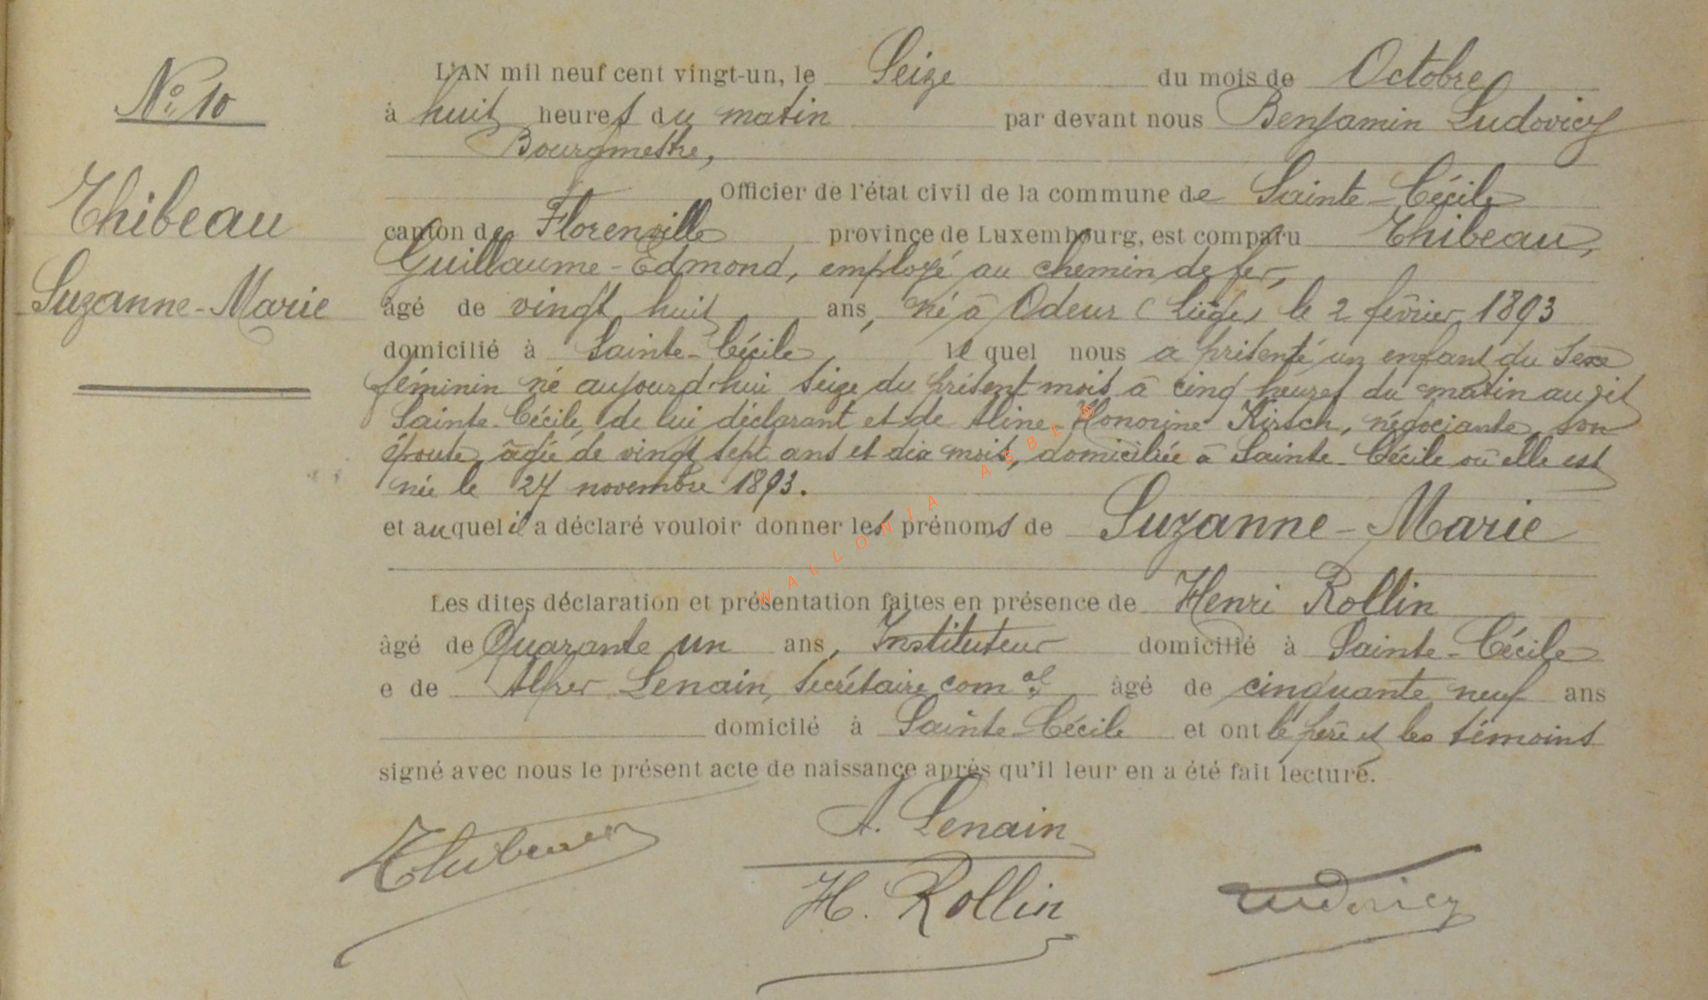 N° 10
Thibeau
Suzanne-Marie
L'AN mil neuf cent vingt-un, le Seize du mois de Octobre
à huit heures du matin par devant nous Benjamin Ludovicy
Bourgmestre,
Officier de l'état civil de la commune de Sainte-Cécile
canton de Florenville province de Luxembourg, est comparu Thibeau,
Guillaume-Edmond, employé au chemin de fer,
âgé de vingt huit ans, né à Odeur (Liège) le 2 février 1893
domicilié à Sainte-Cécile, lequel nous a présenté un enfant du sexe
féminin né aujourd'hui seize du présent mois à cinq heures du matin audit
Sainte-Cécile, de lui déclarant et de Aline Honorine Kirsch, négociante, son
épouse, âgée de vingt sept ans et dix mois, domiciliée à Sainte-Cécile où elle est
née le 27 novembre 1893.
et auquel il a déclaré vouloir donner les prénoms de Suzanne-Marie
Les dites déclaration et présentation faites en présence de Henri Rollin
âgé de Quarante un ans, Instituteur domicilié à Sainte-Cécile
e de Alfred Lenain, secrétaire com^al âgé de cinquante neuf ans
domicilé à Sainte-Cécile et ont le père et les témoins
signé avec nous le présent acte de naissance après qu'il leur en a été fait lecture.
A. Lenain
Thibeau
H. Rollin
Ludovicy
WALLONIA ASBL